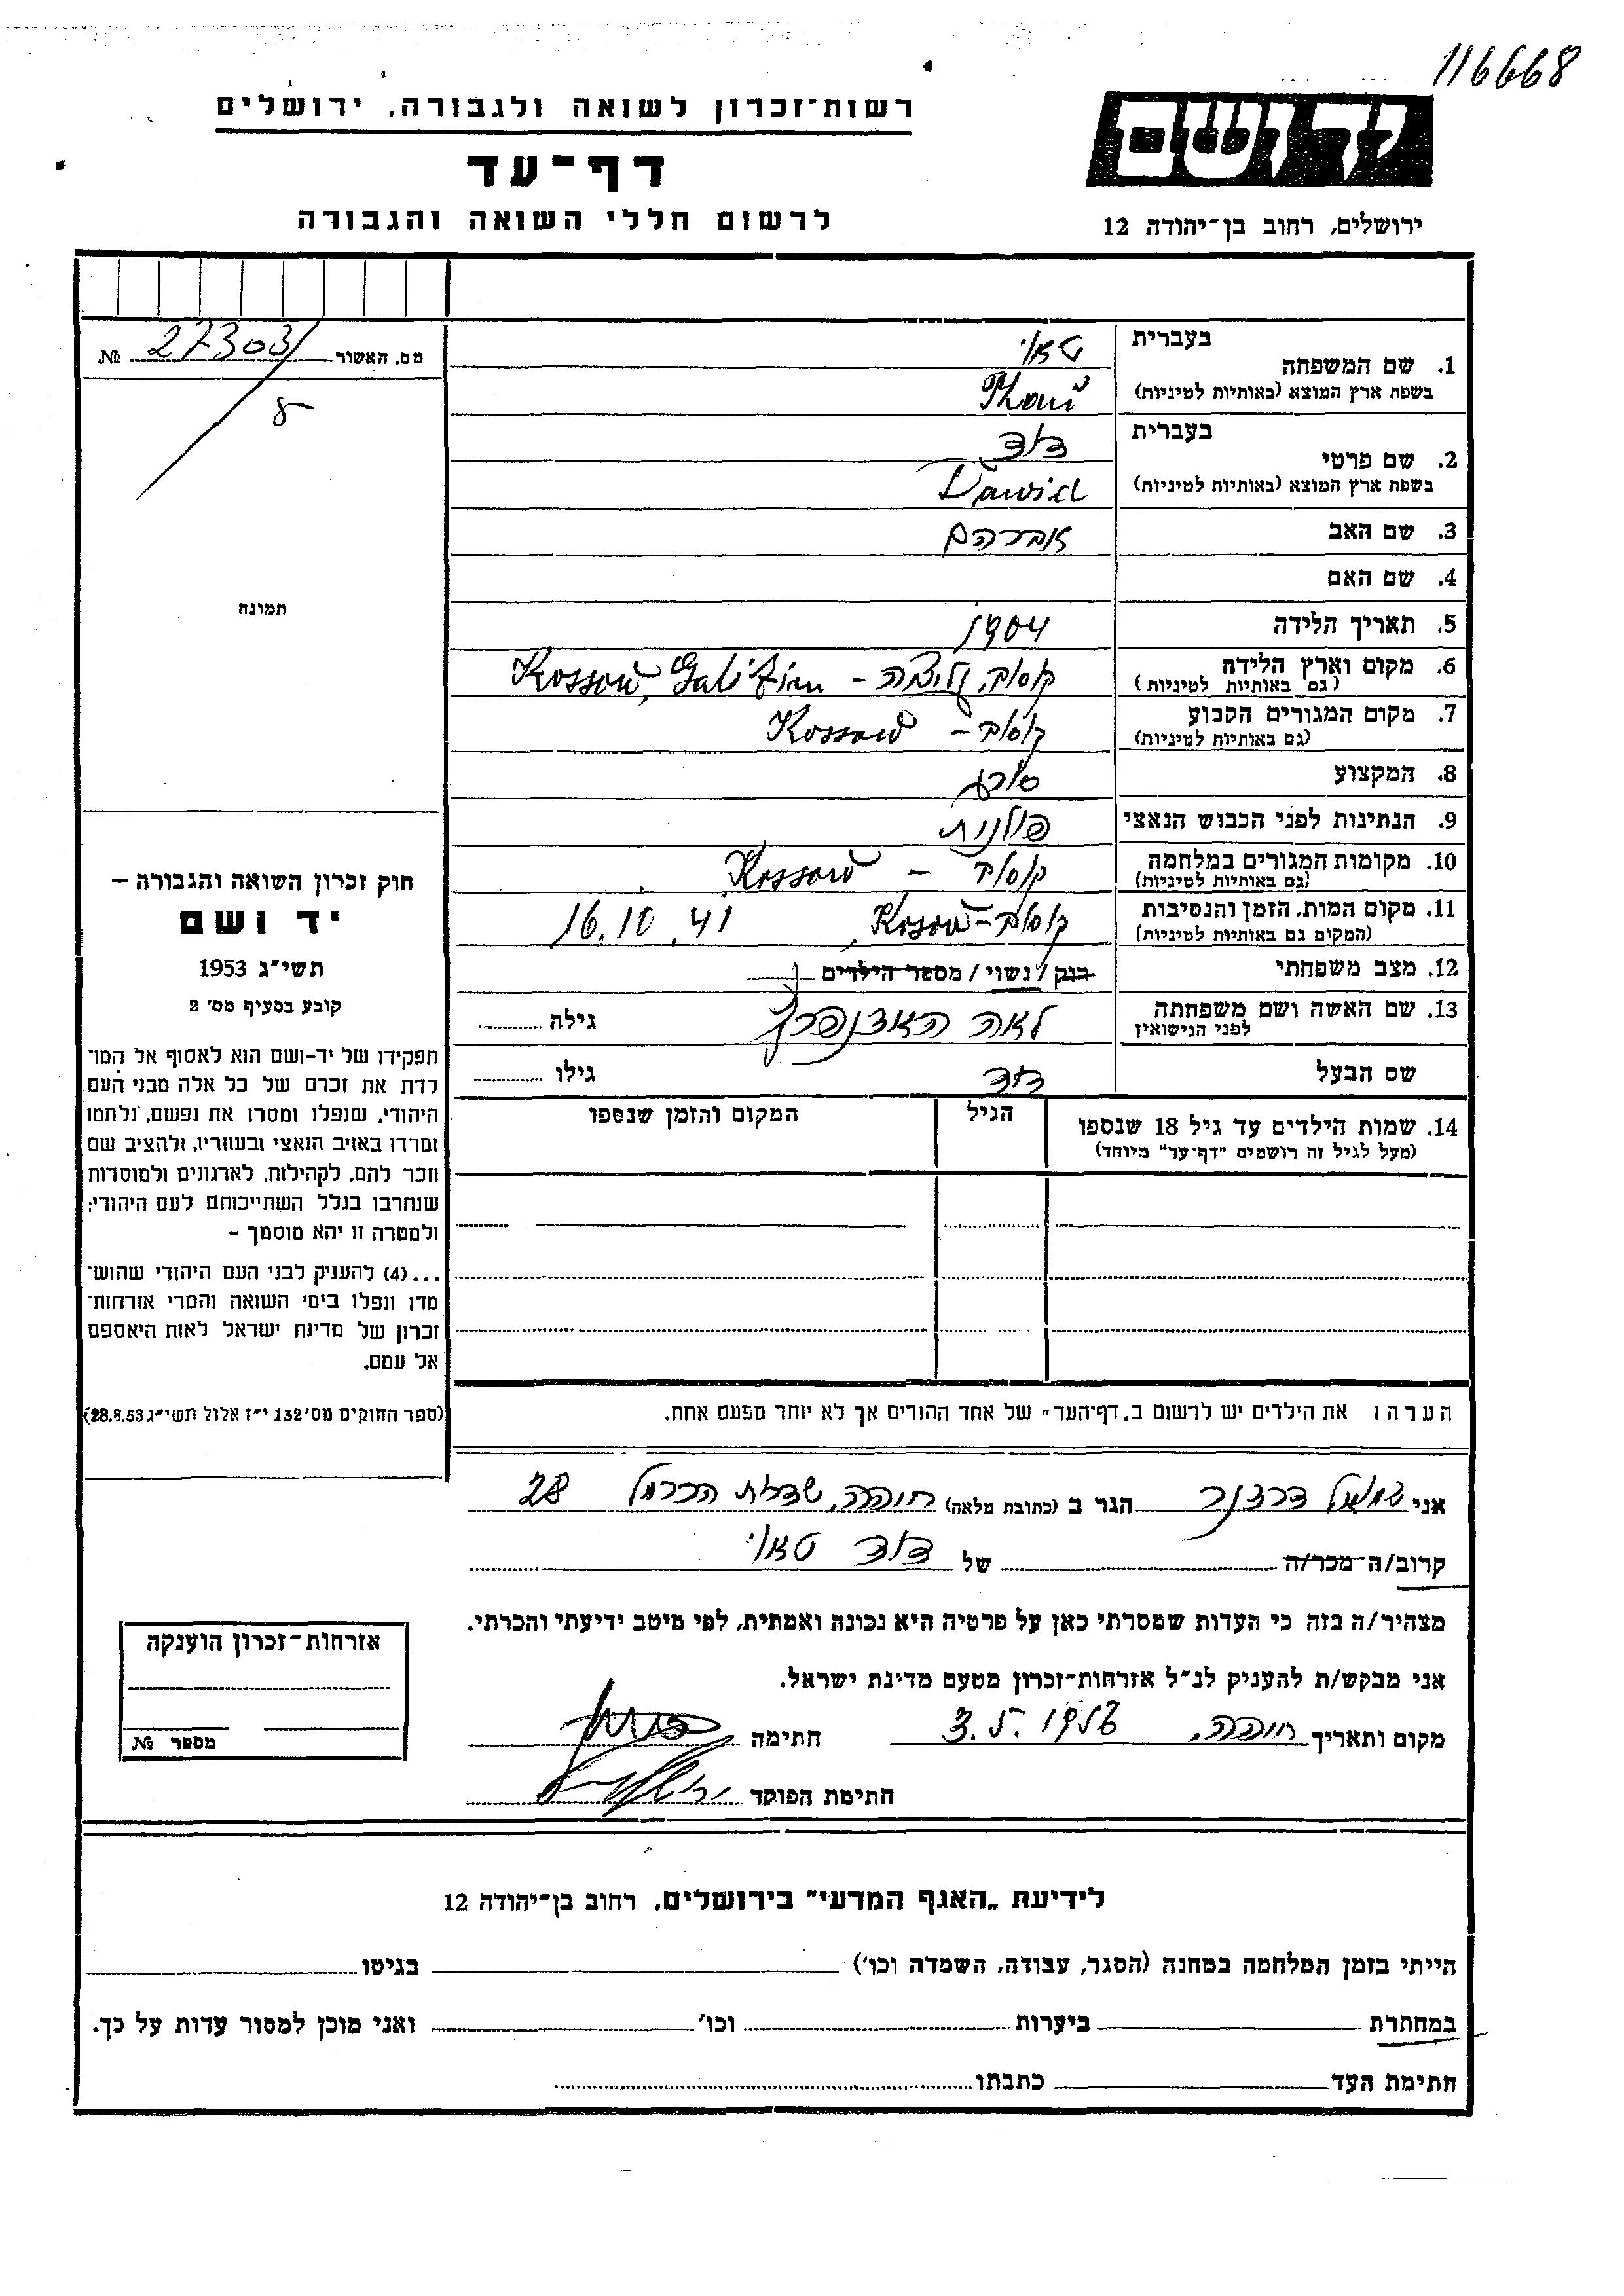 116668
רשות־זכרון לשואה ולגבורה, ירושלים
יד ושם
דף־עד
לרשום חללי השואה והגבורה
ירושלים, רחוב בן־יהודה 12
מס. האשור 27303 №
8
תמונה
1. שם המשפחה
בעברית טאו
בשפת ארץ המוצא (באותיות לטיניות)
2. שם פרטי
בעברית דוד
בשפת ארץ המוצא (באותיות לטיניות) Dawid
3. שם האב אברהם
4. שם האם
5. תאריך הלידה 1904
6. מקום וארץ הלידה קוסוב, גליציה – Kossow, Galizien
(גם באותיות לטיניות)
7. מקום המגורים הקבוע קוסוב – Kossow
(גם באותיות לטיניות)
8. המקצוע סוחר
9. הנתינות לפני הכבוש הנאצי פולנית
10. מקומות המגורים במלחמה קוסוב – Kossow
(גם באותיות לטיניות)
11. מקום המות, הזמן והנסיבות קוסוב – Kosow, 16.10.41
(המקום גם באותיות לטיניות)
12. מצב משפחתי רוק / נשוי / מספר הילדים
13. שם האשה ושם משפחתה לאה גילה
לפני הנישואין
שם הבעל דוד גילו
14. שמות הילדים עד גיל 18 שנספו הגיל המקום והזמן שנספו
(מעל לגיל זה רושמים "דף־עד" מיוחד)
חוק זכרון השואה והגבורה –
יד ושם
תשי"ג 1953
קובע בסעיף מס' 2
תפקידו של יד-ושם הוא לאסוף אל המו־
לדת את זכרם של כל אלה מבני העם
היהודי, שנפלו ומסרו את נפשם, נלחמו
ומרדו באויב הנאצי ובעוזריו, ולהציב שם
וזכר להם, לקהילות, לארגונים ולמוסדות
שנחרבו בגלל השתייכותם לעם היהודי;
ולמטרה זו יהא מוסמך –
...(4) להעניק לבני העם היהודי שהוש־
מדו ונפלו בימי השואה והמרי אזרחות־
זכרון של מדינת ישראל לאות היאספם
אל עמם.
(ספר החוקים מס' 132 י"ז אלול תשי"ג 28.8.53)
הערה: את הילדים יש לרשום ב„דף־העד" של אחד ההורים אך לא יותר מפעם אחת.
אני שמואל הגר ב (כתובת מלאה) חיפה, שדרות הכרמל 28
קרוב/ה מכר/ה של דוד טאו
מצהיר/ה בזה כי העדות שמסרתי כאן על פרטיה היא נכונה ואמתית, לפי מיטב ידיעתי והכרתי.
אני מבקש/ת להעניק לנ"ל אזרחות־זכרון מטעם מדינת ישראל.
מקום ותאריך חיפה, חתימה
חתימת הפוקד
אזרחות־זכרון הוענקה
מספר №
לידיעת „האגף המדעי" בירושלים, רחוב בן־יהודה 12
הייתי בזמן המלחמה במחנה (הסגר, עבודה, השמדה וכו') בגיטו
במחתרת ביערות וכו' ואני מוכן למסור עדות על כך.
חתימת העד כתבתו